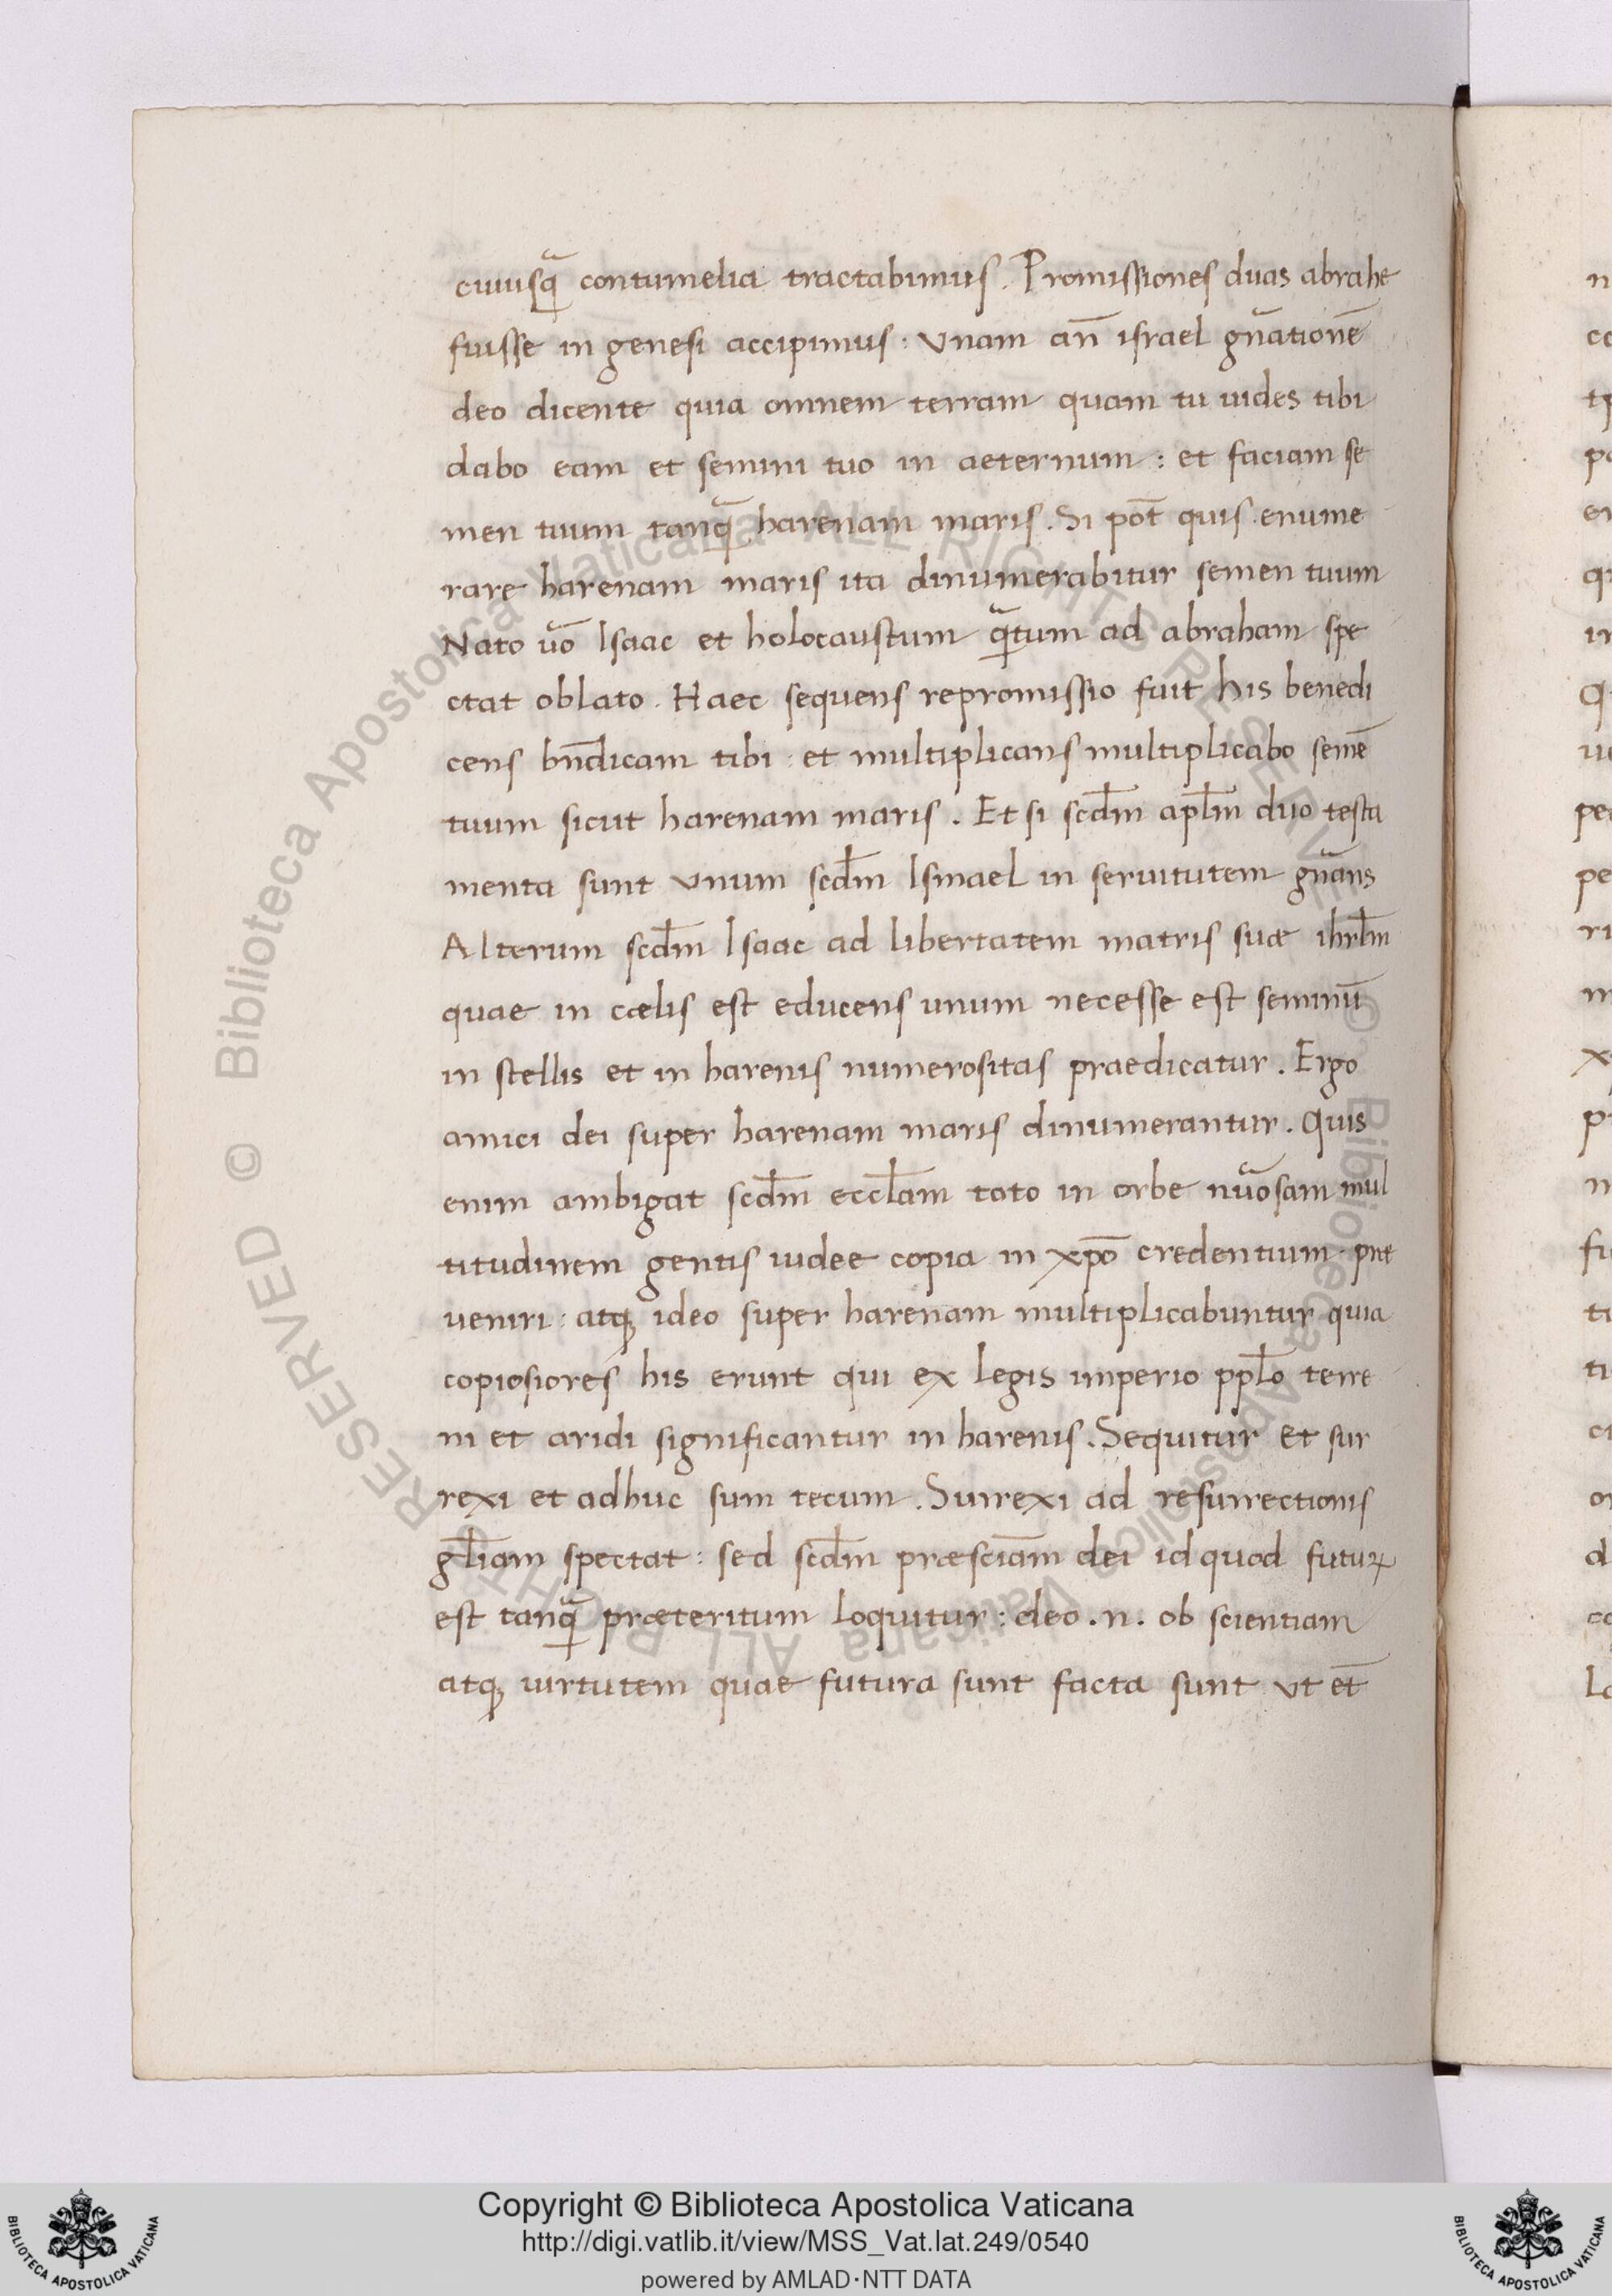 cuiusq̃ contumelia tractabimus. Promissiones duas abrahe
fuisse in genesi accipimus: Vnam añ israel gñationē
deo dicente quia omnem terram quam tu uides tibi
dabo eam et semini tuo in aeternum: et faciam se
men tuum tanq̃ harenam maris. Si pōt quis enume
rare harenam maris ita dinumerabitur semen tuum
Nato ũo Isaac et holocaustum q̃tum ad abraham spe
ctat oblato. Haec sequens repromissio fuit his benedi
cens bñdicam tibi: et multiplicans multiplicabo semē
tuum sicut harenam maris. Et si scdm̄ aplm̄ duo testa
menta sunt vnum scdm̄ Ismael in seruitutem gñans
Alterum scdm̄ Isaac ad libertatem matris suæ ihrlm̄
quae in cælis est educens unum necesse est seminū
in stellis et in harenis numerositas praedicatur. Ergo
amici dei super harenam maris dinumerantur. Quis
enim ambigat scdm̄ eccl̄am toto in orbe nũosam mul
titudinem gentis iudee copia in xp̄o credentium præ
ueniri: atq; ideo super harenam multiplicabuntur quia
copiosiores his erunt qui ex legis imperio ppl̄o terre
ni et aridi significantur in harenis. Sequitur et sur
rexi et adhuc sum tecum. Surrexi ad resurrectionis
gl̄iam spectat: sed scdm̄ præsciam̄ dei id quod futuꝝ
est tanq̃ præteritum loquitur: deo .n. ob scientiam
atq; uirtutem quae futura sunt facta sunt vt et̄
© Biblioteca Apostolica Vaticana ALL RIGHTS RESERVED
© Biblioteca Apostolica Vaticana ALL RIGHTS RESERVED
Copyright © Biblioteca Apostolica Vaticana
http://digi.vatlib.it/view/MSS_Vat.lat.249/0540
powered by AMLAD·NTT DATA
BIBLIOTECA APOSTOLICA VATICANA
BIBLIOTECA APOSTOLICA VATICANA